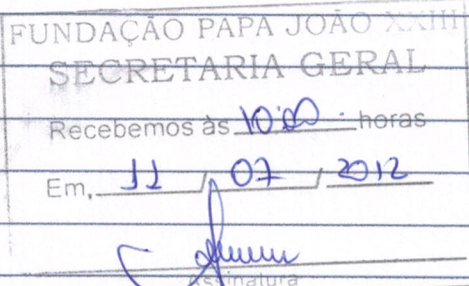 FUNDAÇÃO PAPA JOÃO XXIII
SECRETARIA GERAL
Recebemos às 10:00 horas
Em, 11 / 07 / 2012
Assinatura